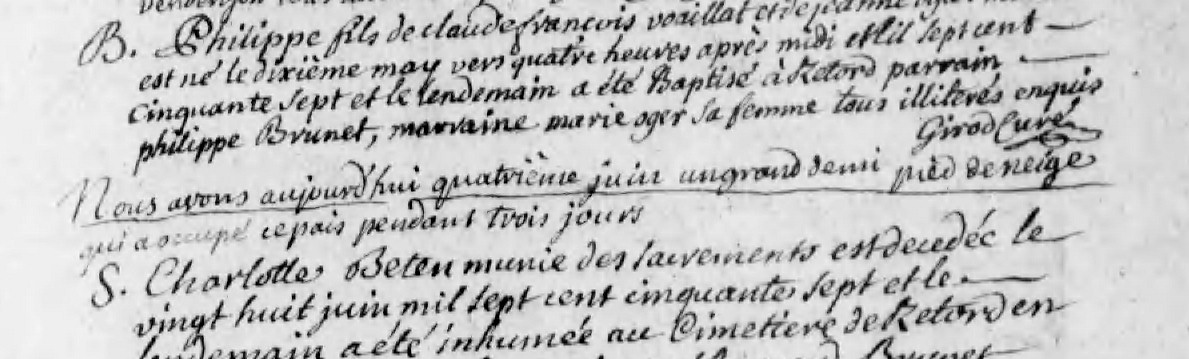 B. Philippe fils de claude françois voaillat et de jeanne
est né le dixiême may vers quatre heures après midi et lil sept cent
cinquante sept et le lendemain a été Baptisé à Retord parrain
philippe Brunet, marraine marie oger sa femme tous illiterés enquis
Girod Curé
Nous avons aujourd'hui quatrième juin un grand demi pied de neige
qui a occupé ce pais pendant trois jours
S. Charlotte Beteu munie des sacrements est decedéé le
vingt huit juin mil sept cent cinquante sept et le
lendemain a été inhumée au Cimetiere de Retord en
Brunet